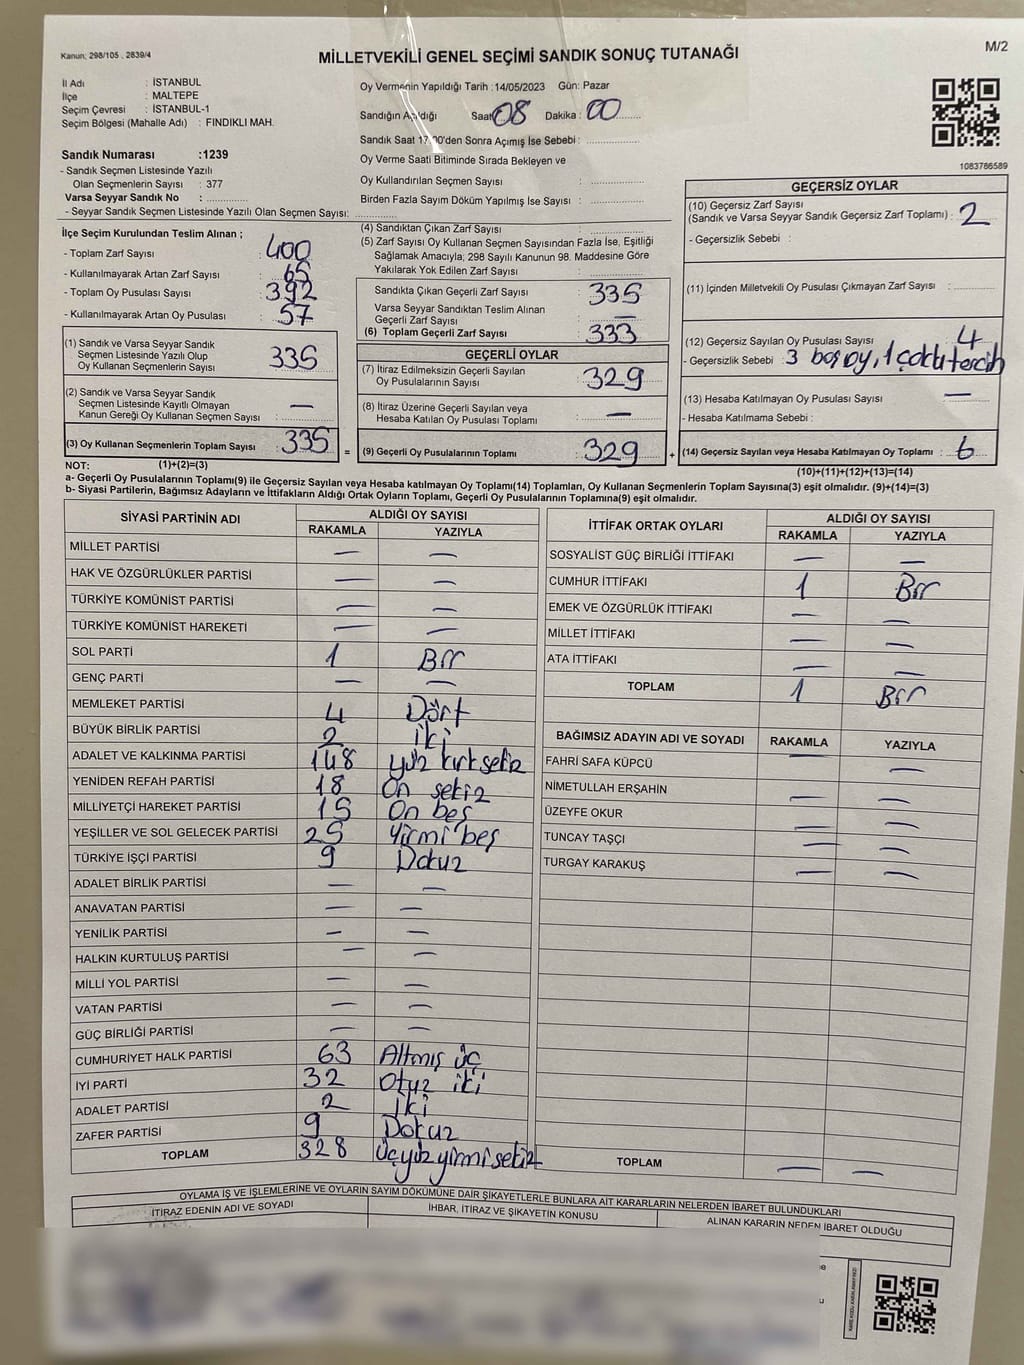 Kanun; 298/105 , 2839/4
MİLLETVEKİLİ GENEL SEÇİMİ SANDIK SONUÇ TUTANAĞI
M/2
İl Adı : İSTANBUL
İlçe : MALTEPE
Seçim Çevresi : İSTANBUL-1
Seçim Bölgesi (Mahalle Adı) : FINDIKLI MAH.
Oy Vermenin Yapıldığı Tarih :14/05/2023 Gün: Pazar
Sandığın Açıldığı Saat 08 Dakika : 00
Sandık Saat 17.00'den Sonra Açımış İse Sebebi :
Oy Verme Saati Bitiminde Sırada Bekleyen ve
Oy Kullandırılan Seçmen Sayısı :
Birden Fazla Sayım Döküm Yapılmış İse Sayısı :
1083786589
Sandık Numarası :1239
- Sandık Seçmen Listesinde Yazılı
Olan Seçmenlerin Sayısı : 377
Varsa Seyyar Sandık No :
- Seyyar Sandık Seçmen Listesinde Yazılı Olan Seçmen Sayısı:
İlçe Seçim Kurulundan Teslim Alınan ;
- Toplam Zarf Sayısı : 400
- Kullanılmayarak Artan Zarf Sayısı : 65
- Toplam Oy Pusulası Sayısı : 392
- Kullanılmayarak Artan Oy Pusulası : 57
(1) Sandık ve Varsa Seyyar Sandık
Seçmen Listesinde Yazılı Olup
Oy Kullanan Seçmenlerin Sayısı : 335
(2) Sandık ve Varsa Seyyar Sandık
Seçmen Listesinde Kayıtlı Olmayan
Kanun Gereği Oy Kullanan Seçmen Sayısı : —
(3) Oy Kullanan Seçmenlerin Toplam Sayısı : 335
(4) Sandıktan Çıkan Zarf Sayısı :
(5) Zarf Sayısı Oy Kullanan Seçmen Sayısından Fazla İse, Eşitliği
Sağlamak Amacıyla; 298 Sayılı Kanunun 98. Maddesine Göre
Yakılarak Yok Edilen Zarf Sayısı :
Sandıkta Çıkan Geçerli Zarf Sayısı : 335
Varsa Seyyar Sandıktan Teslim Alınan
Geçerli Zarf Sayısı : —
(6) Toplam Geçerli Zarf Sayısı : 333
GEÇERLİ OYLAR
(7) İtiraz Edilmeksizin Geçerli Sayılan
Oy Pusulalarının Sayısı : 329
(8) İtiraz Üzerine Geçerli Sayılan veya
Hesaba Katılan Oy Pusulaları Toplamı : —
= (9) Geçerli Oy Pusulalarının Toplamı : 329
GEÇERSİZ OYLAR
(10) Geçersiz Zarf Sayısı
(Sandık ve Varsa Seyyar Sandık Geçersiz Zarf Toplamı) : 2
- Geçersizlik Sebebi :
(11) İçinden Milletvekili Oy Pusulası Çıkmayan Zarf Sayısı :
(12) Geçersiz Sayılan Oy Pusulası Sayısı : 4
- Geçersizlik Sebebi : 3 boş oy, 1 çoklu tercih
(13) Hesaba Katılmayan Oy Pusulası Sayısı : —
- Hesaba Katılmama Sebebi :
+ (14) Geçersiz Sayılan veya Hesaba Katılmayan Oy Toplamı : 6
NOT: (1)+(2)=(3)
(10)+(11)+(12)+(13)=(14)
a- Geçerli Oy Pusulalarının Toplamı(9) ile Geçersiz Sayılan veya Hesaba katılmayan Oy Toplamı(14) Toplamları, Oy Kullanan Seçmenlerin Toplam Sayısına(3) eşit olmalıdır. (9)+(14)=(3)
b- Siyasi Partilerin, Bağımsız Adayların ve İttifakların Aldığı Ortak Oyların Toplamı, Geçerli Oy Pusulalarının Toplamına(9) eşit olmalıdır.
SİYASİ PARTİNİN ADI ALDIĞI OY SAYISI
RAKAMLA YAZIYLA
MİLLET PARTİSİ — —
HAK VE ÖZGÜRLÜKLER PARTİSİ — —
TÜRKİYE KOMÜNİST PARTİSİ — —
TÜRKİYE KOMÜNİST HAREKETİ — —
SOL PARTİ 1 Bir
GENÇ PARTİ — —
MEMLEKET PARTİSİ 4 Dört
BÜYÜK BİRLİK PARTİSİ 2 iki
ADALET VE KALKINMA PARTİSİ 148 yüz kırk sekiz
YENİDEN REFAH PARTİSİ 18 On sekiz
MİLLİYETÇİ HAREKET PARTİSİ 15 On beş
YEŞİLLER VE SOL GELECEK PARTİSİ 25 Yirmi beş
TÜRKİYE İŞÇİ PARTİSİ 9 Dokuz
ADALET BİRLİK PARTİSİ — —
ANAVATAN PARTİSİ — —
YENİLİK PARTİSİ — —
HALKIN KURTULUŞ PARTİSİ — —
MİLLİ YOL PARTİSİ — —
VATAN PARTİSİ — —
GÜÇ BİRLİĞİ PARTİSİ — —
CUMHURİYET HALK PARTİSİ 63 Altmış üç
İYİ PARTİ 32 Otuz iki
ADALET PARTİSİ 2 İki
ZAFER PARTİSİ 9 Dokuz
TOPLAM 328 üçyüz yirmi sekiz
İTTİFAK ORTAK OYLARI ALDIĞI OY SAYISI
RAKAMLA YAZIYLA
SOSYALİST GÜÇ BİRLİĞİ İTTİFAKI — —
CUMHUR İTTİFAKI 1 Bir
EMEK VE ÖZGÜRLÜK İTTİFAKI — —
MİLLET İTTİFAKI — —
ATA İTTİFAKI — —
TOPLAM 1 Bir
BAĞIMSIZ ADAYIN ADI VE SOYADI RAKAMLA YAZIYLA
FAHRİ SAFA KÜPCÜ — —
NİMETULLAH ERŞAHİN — —
ÜZEYFE OKUR — —
TUNCAY TAŞÇI — —
TURGAY KARAKUŞ — —
TOPLAM — —
OYLAMA İŞ VE İŞLEMLERİNE VE OYLARIN SAYIM DÖKÜMÜNE DAİR ŞİKAYETLERLE BUNLARA AİT KARARLARIN NELERDEN İBARET BULUNDUKLARI
İTİRAZ EDENİN ADI VE SOYADI İHBAR, İTİRAZ VE ŞİKAYETİN KONUSU ALINAN KARARIN NEDEN İBARET OLDUĞU